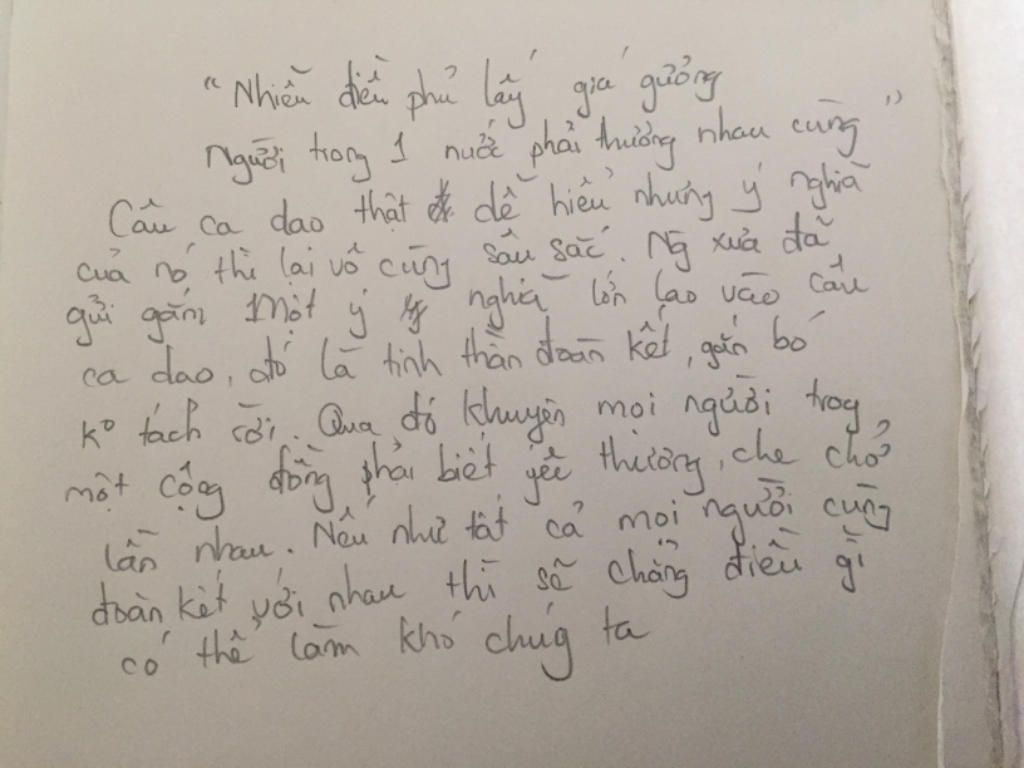 "Nhiễu điều phủ lấy giá gương
Người trong 1 nước phải thương nhau cùng"
Câu ca dao thật dễ hiểu nhưng ý nghĩa
của nó thì lại vô cùng sâu sắc. Ng xưa đã
gửi gắm một ý nghĩa lớn lao vào câu
ca dao, đó là tinh thần đoàn kết, gắn bó
ko tách rời. Qua đó khuyên mọi người trog
một cộng đồng phải biết yêu thương, che chở
lẫn nhau. Nếu như tất cả mọi người cùng
đoàn kết với nhau thì sẽ chẳng điều gì
có thể làm khó chúg ta